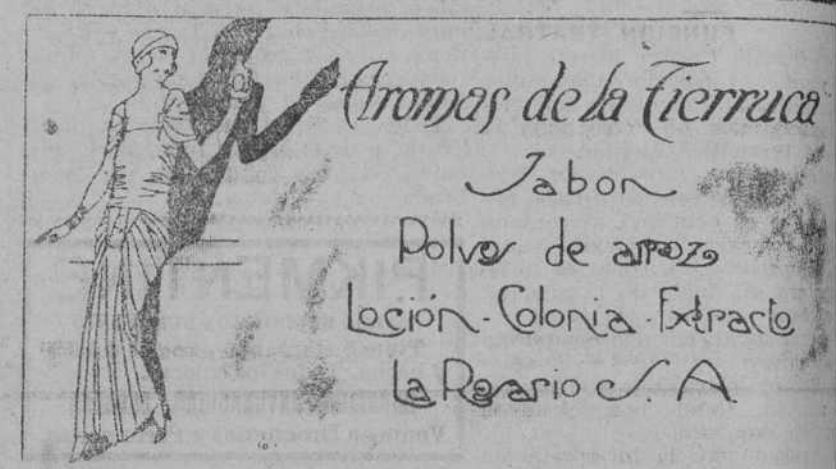 Aromas de la Tierruca
Jabon
Polvos de arroz
Loción - Colonia - Extracto
La Rosario S. A.